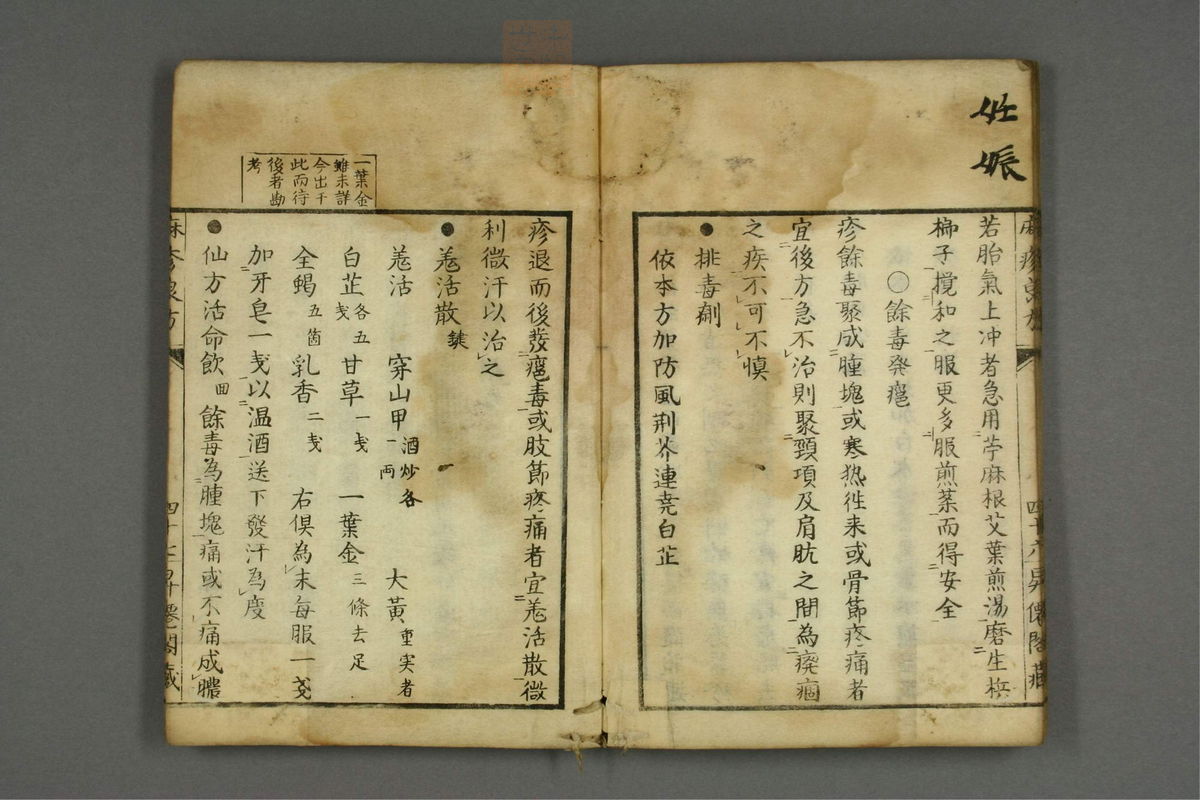 妊娠
若胎氣上冲者急用苧麻根艾葉煎湯磨生梹
榔子攪和之服更多服煎茶而得安全
○餘毒発瘡
疹餘毒聚成腫塊或寒热徃来或骨節疼痛者
宜後方急不治則聚頸項及肩肮之間為癈痼
之疾不可不慎
●排毒劑
依本方加防風荊芥連尭白芷
疹退而後發瘡毒或肢節疼痛者宜羗活散微
利微汗以治之
●羗活散
羗活 穿山甲酒炒各一両 大黄重実者
白芷各五戔 甘草一戔 一葉金三條去足
全蝎五箇 乳香二戔 右俱為末每服一戔
加牙皂一戔以温酒送下發汗為度
●仙方活命飲回 餘毒為腫塊痛或不痛成膿
一葉金
雖未詳
今出于
此而待
後者勘
考
四十六
四十七